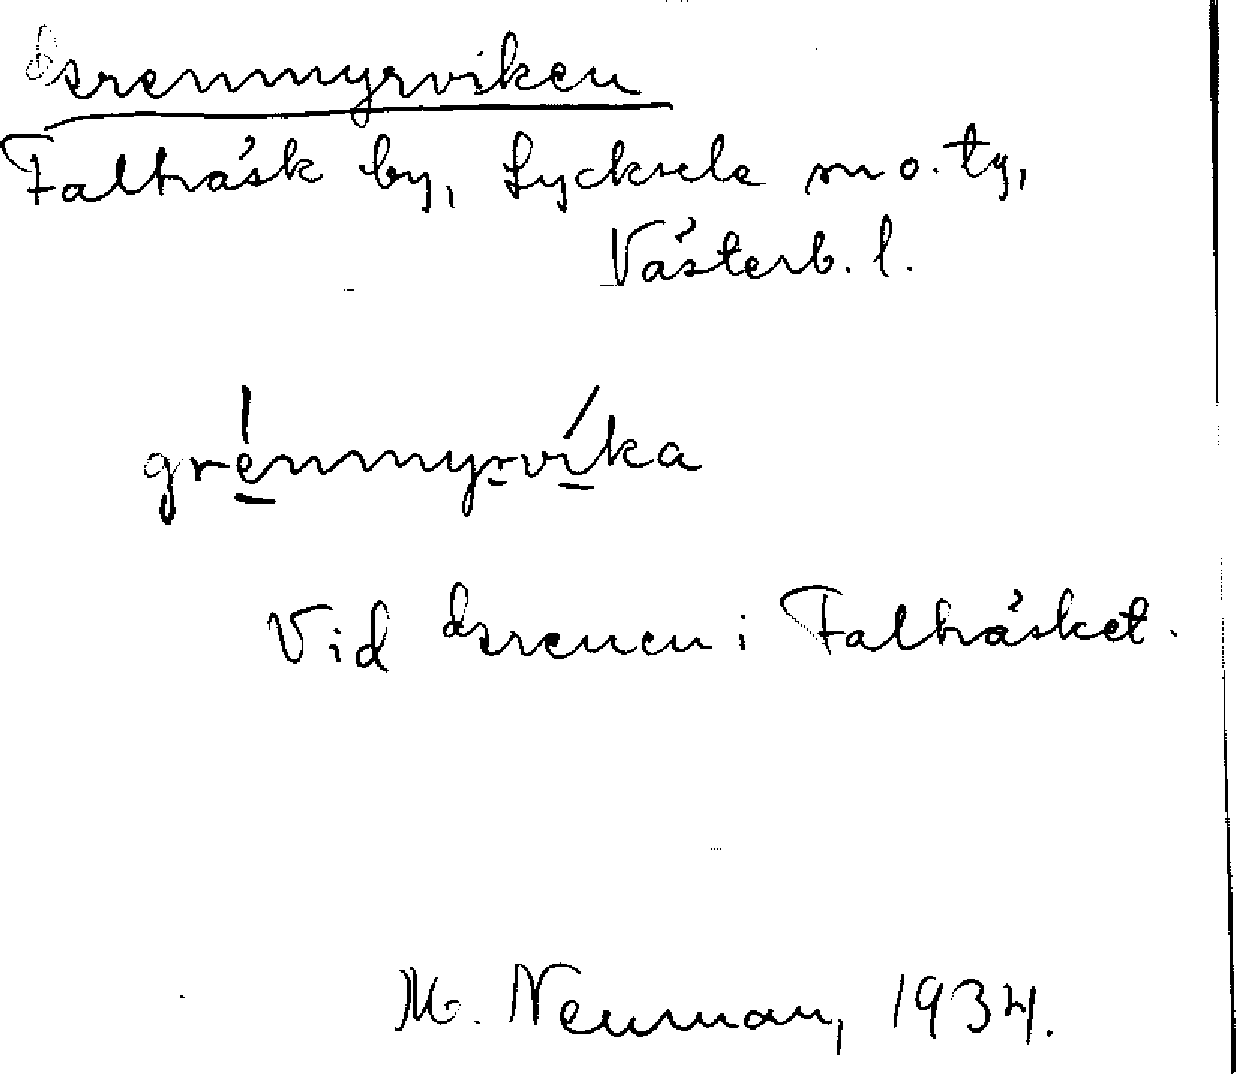 Grenmyrviken
Falträsk by, Lycksele sn o. tg,
Västerb. l.
grénmyrvíka
Vid Grenen i Falträsket.
M. Neuman, 1934.